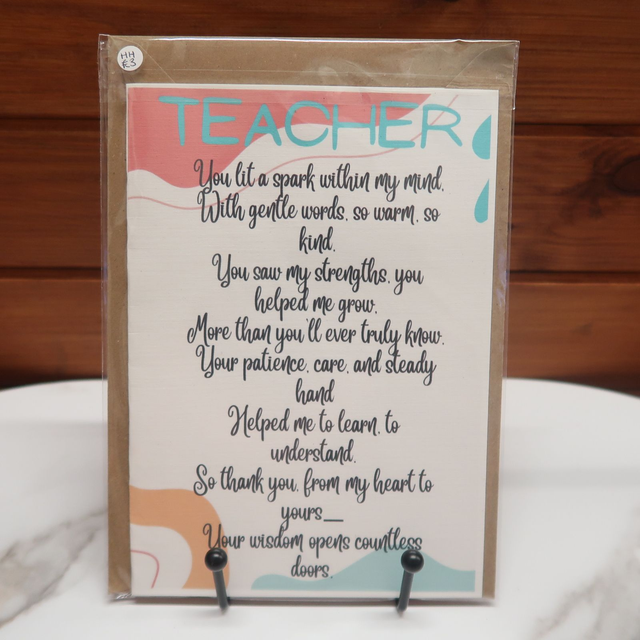 HH
£3
TEACHER
You lit a spark within my mind,
With gentle words, so warm, so
kind.
You saw my strengths, you
helped me grow,
More than you'll ever truly know.
Your patience, care, and steady
hand
Helped me to learn, to
understand.
So thank you, from my heart to
yours__
Your wisdom opens countless
doors.